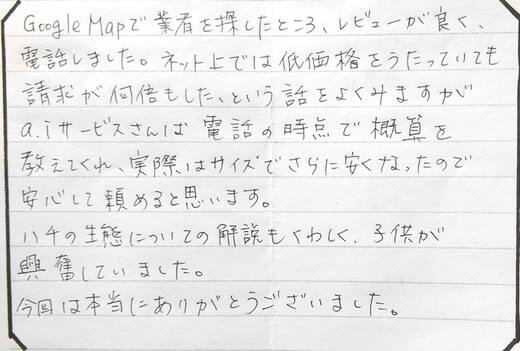 Google Mapで業者を探したところ、レビューが良く、
電話しました。ネット上では低価格をうたっていても
請求が何倍もした、という話をよくみますが
a.iサービスさんは電話の時点で概算を
教えてくれ、実際はサイズでさらに安くなったので
安心して頼めると思います。
ハチの生態についての解説もくわしく、子供が
興奮していました。
今回は本当にありがとうございました。